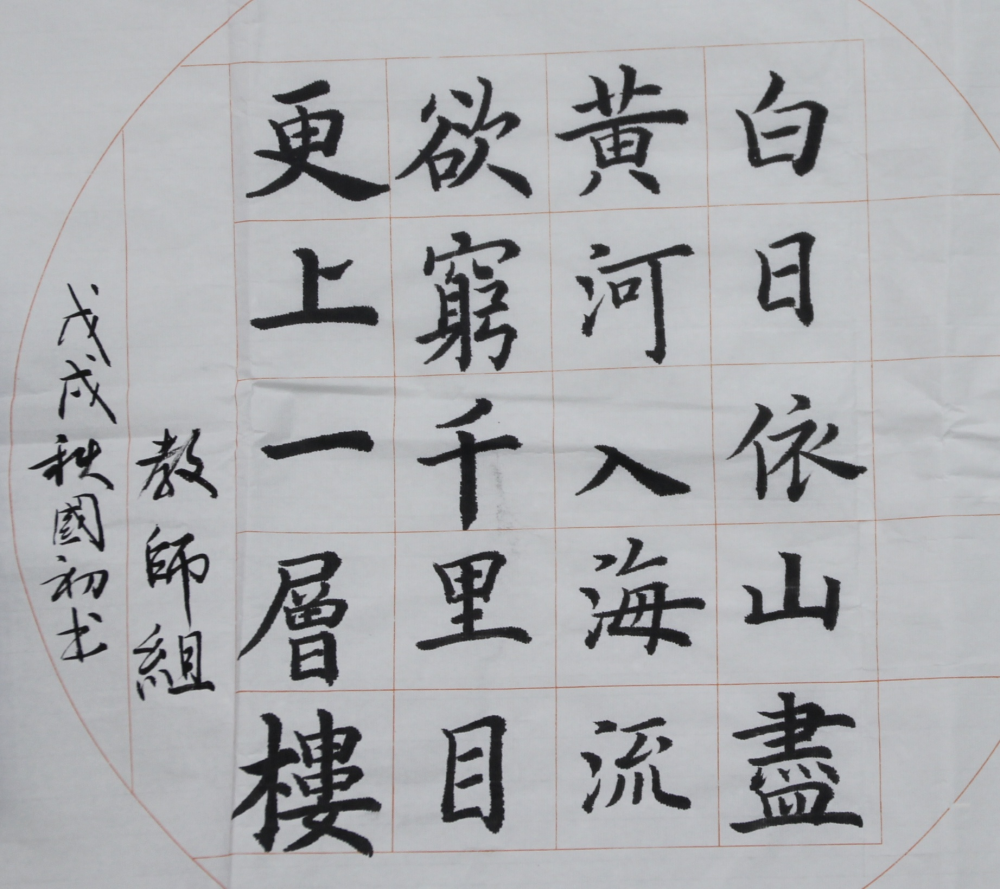 白日依山盡
黃河入海流
欲窮千里目
更上一層樓
教師組
戊戌秋國初书